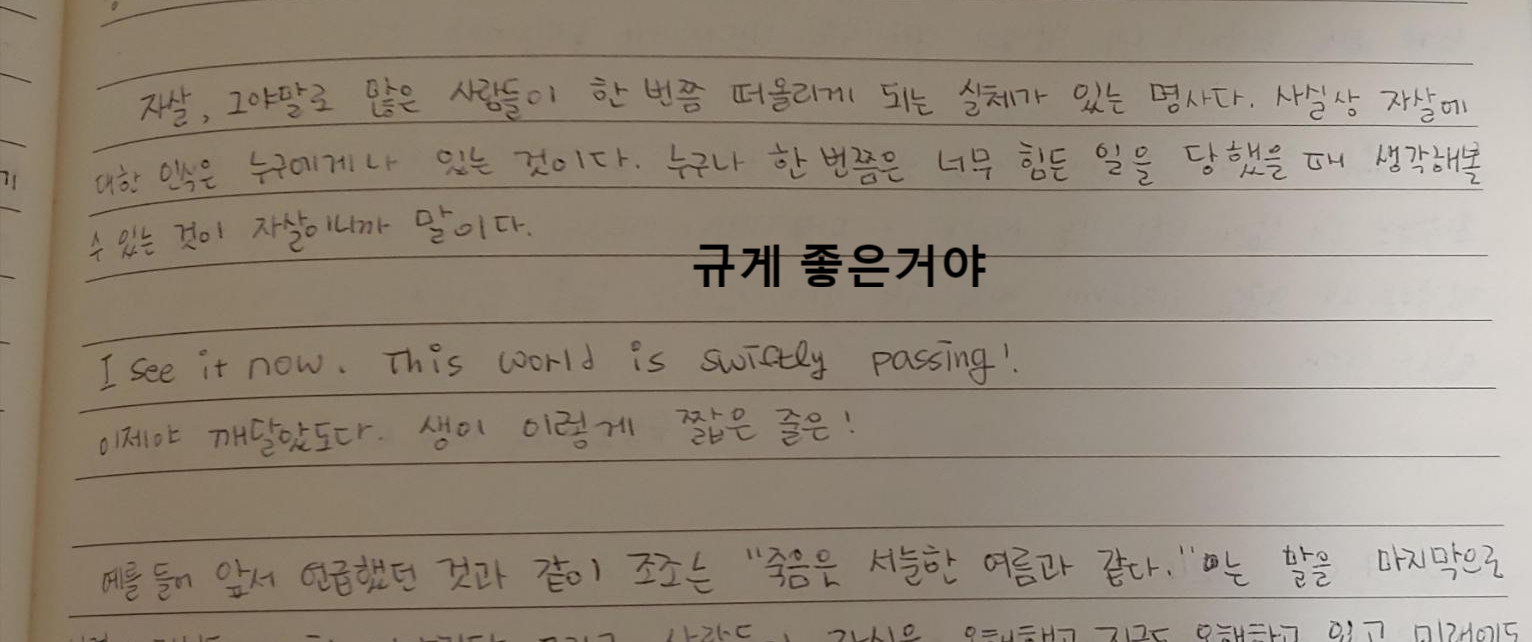 자살, 그야말로 많은 사람들이 한 번쯤 떠올리게 되는 실체가 있는 명사다. 사실상 자살에
대한 인식은 누구에게나 있는 것이다. 누구나 한 번쯤은 너무 힘든 일을 당했을 때 생각해볼
수 있는 것이 자살이니까 말이다.
규게 좋은거야
I see it now. This world is swiftly passing!
이제야 깨달았도다. 생이 이렇게 짧은 줄은!
예를 들어 앞서 언급했던 것과 같이 조조는 "죽음은 서늘한 여름과 같다."는 말을 마지막으로